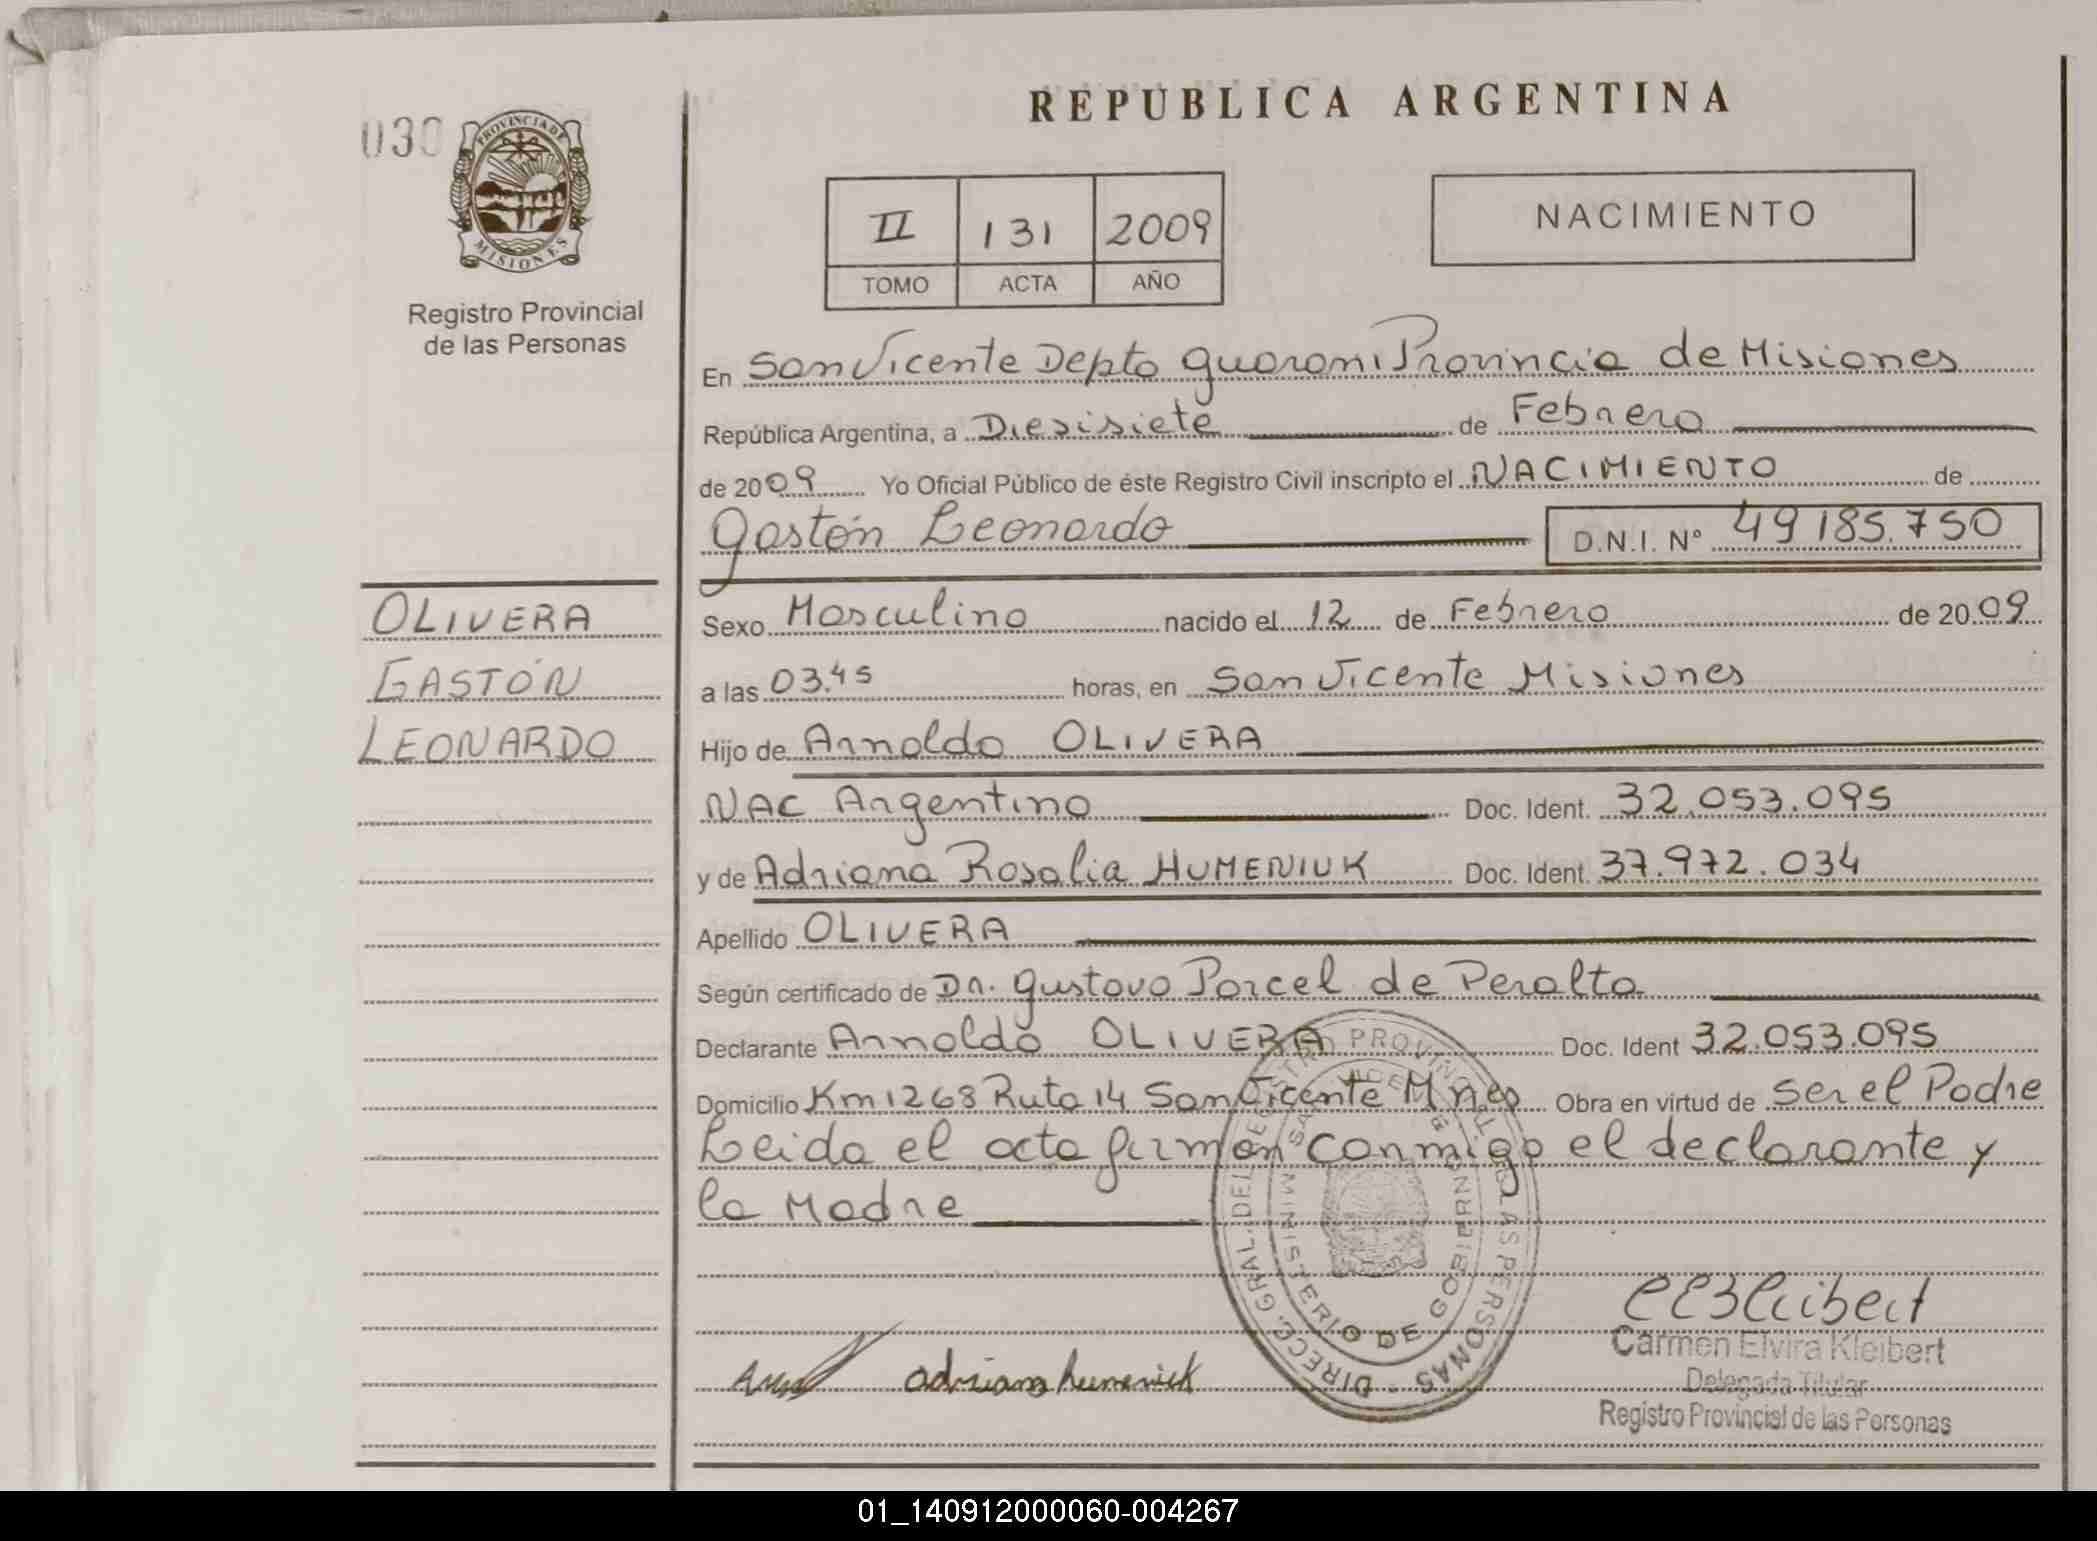 030
PROVINCIA DE
MISIONES
Registro Provincial
de las Personas
OLIVERA
GASTÓN
LEONARDO
REPUBLICA ARGENTINA
II 131 2009
TOMO ACTA AÑO
NACIMIENTO
En San Vicente Depto guarani Provincia de Misiones
República Argentina, a Diesisiete de Febrero
de 2009 Yo Oficial Público de éste Registro Civil inscripto el NACIMIENTO de
Gastón Leonardo D.N.I. N° 49185.750
Sexo Masculino nacido el 12 de Febrero de 2009
a las 03.45 horas, en San Vicente Misiones
Hijo de Arnoldo OLIVERA
NAC Argentino Doc. Ident. 32.053.095
y de Adriana Rosalia HUMENIUK Doc. Ident. 37.972.034
Apellido OLIVERA
Según certificado de Dr. Gustavo Porcel de Peralta
Declarante Arnoldo OLIVERA Doc. Ident 32.053.095
Domicilio Km 1268 Ruta 14 San Vicente Mnes Obra en virtud de Ser el Padre
Leida el acta firman conmigo el declarante y
la Madre
DIRECC. GRAL. DEL REGISTRO PROVINCIAL DE LAS PERSONAS
MINISTERIO DE GOBIERNO
adriana humeniuk
Carmen Elvira Kleibert
Delegada Titular
Registro Provincial de las Personas
01_140912000060-004267